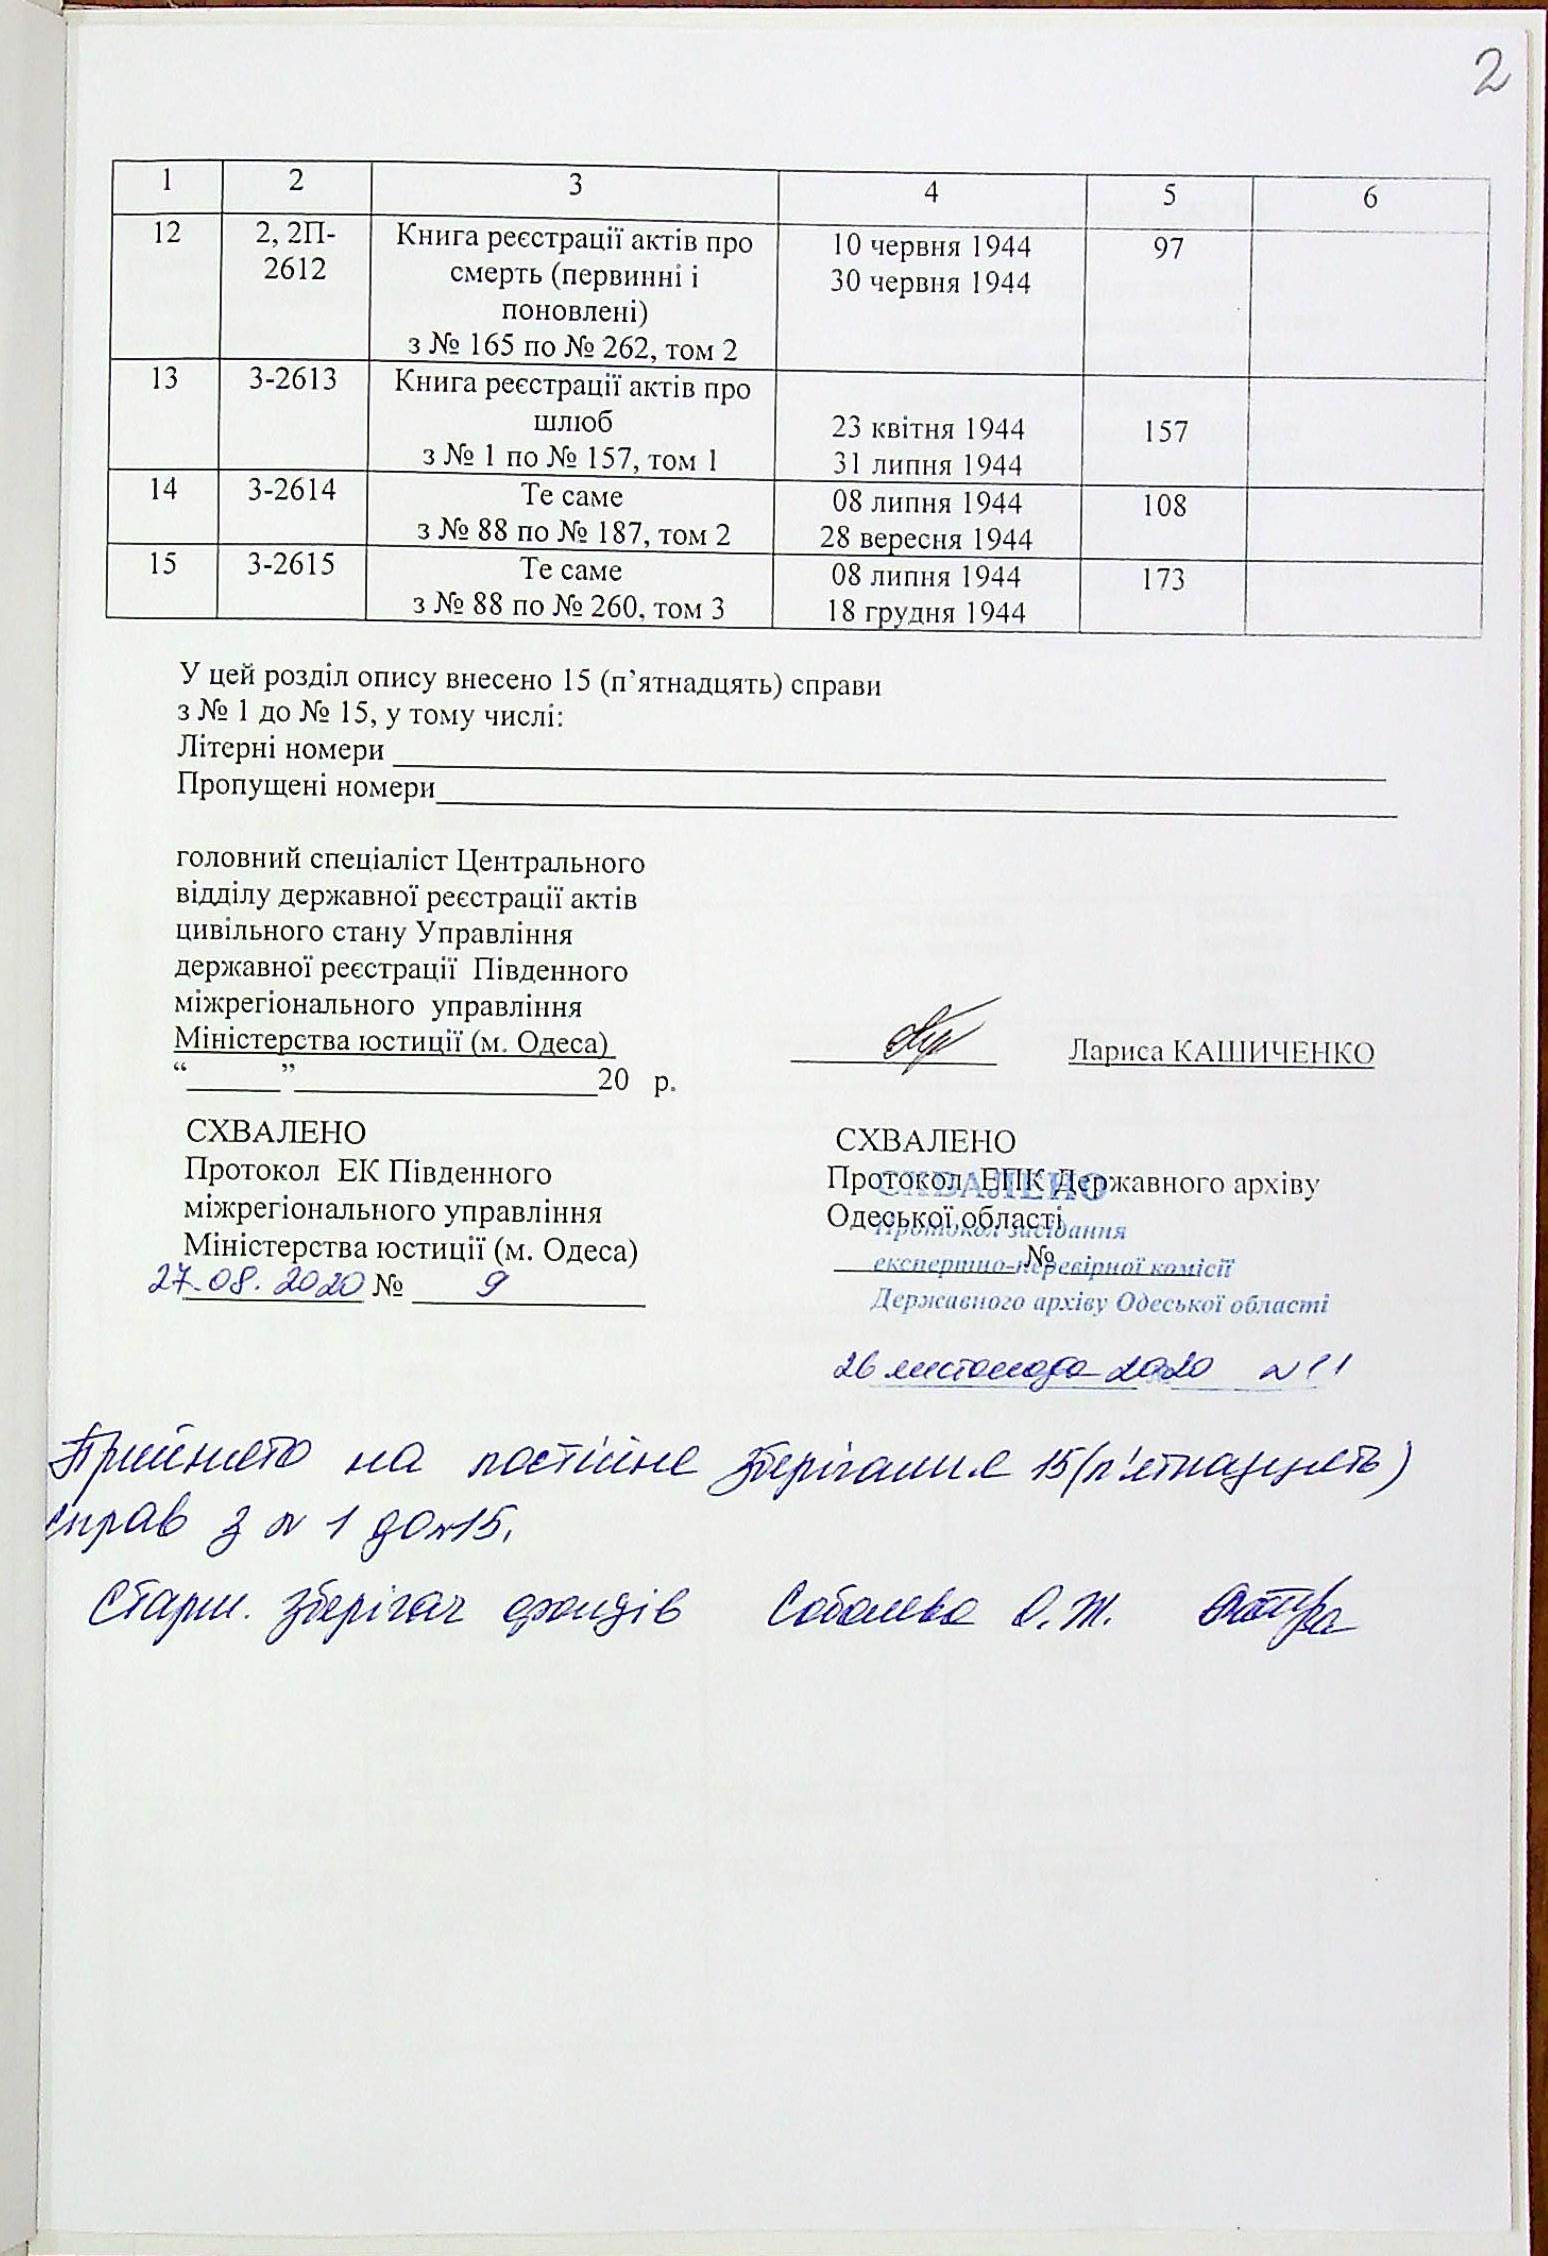 2
1 2 3 4 5 6
12 2, 2П-2612 Книга реєстрації актів про 10 червня 1944 97
смерть (первинні і 30 червня 1944
поновлені)
з № 165 по № 262, том 2
13 3-2613 Книга реєстрації актів про
шлюб 23 квітня 1944 157
з № 1 по № 157, том 1 31 липня 1944
14 3-2614 Те саме 08 липня 1944 108
з № 88 по № 187, том 2 28 вересня 1944
15 3-2615 Те саме 08 липня 1944 173
з № 88 по № 260, том 3 18 грудня 1944
У цей розділ опису внесено 15 (п’ятнадцять) справи
з № 1 до № 15, у тому числі:
Літерні номери
Пропущені номери
головний спеціаліст Центрального
відділу державної реєстрації актів
цивільного стану Управління
державної реєстрації Південного
міжрегіонального управління
Міністерства юстиції (м. Одеса) Лариса КАШИЧЕНКО
“ ” 20 р.
СХВАЛЕНО
Протокол ЕК Південного
міжрегіонального управління
Міністерства юстиції (м. Одеса)
27.08.2020 № 9
СХВАЛЕНО
Протокол ЕПК Державного архіву
Одеської області
№
СХВАЛЕНО
Протокол засідання
експертно-перевірної комісії
Державного архіву Одеської області
26 листопада 2020 № 11
Прийнято на постійне зберігання 15 (п'ятнадцять)
справ з № 1 до № 15.
Старш. зберігач фондів Соболева О. Ж.